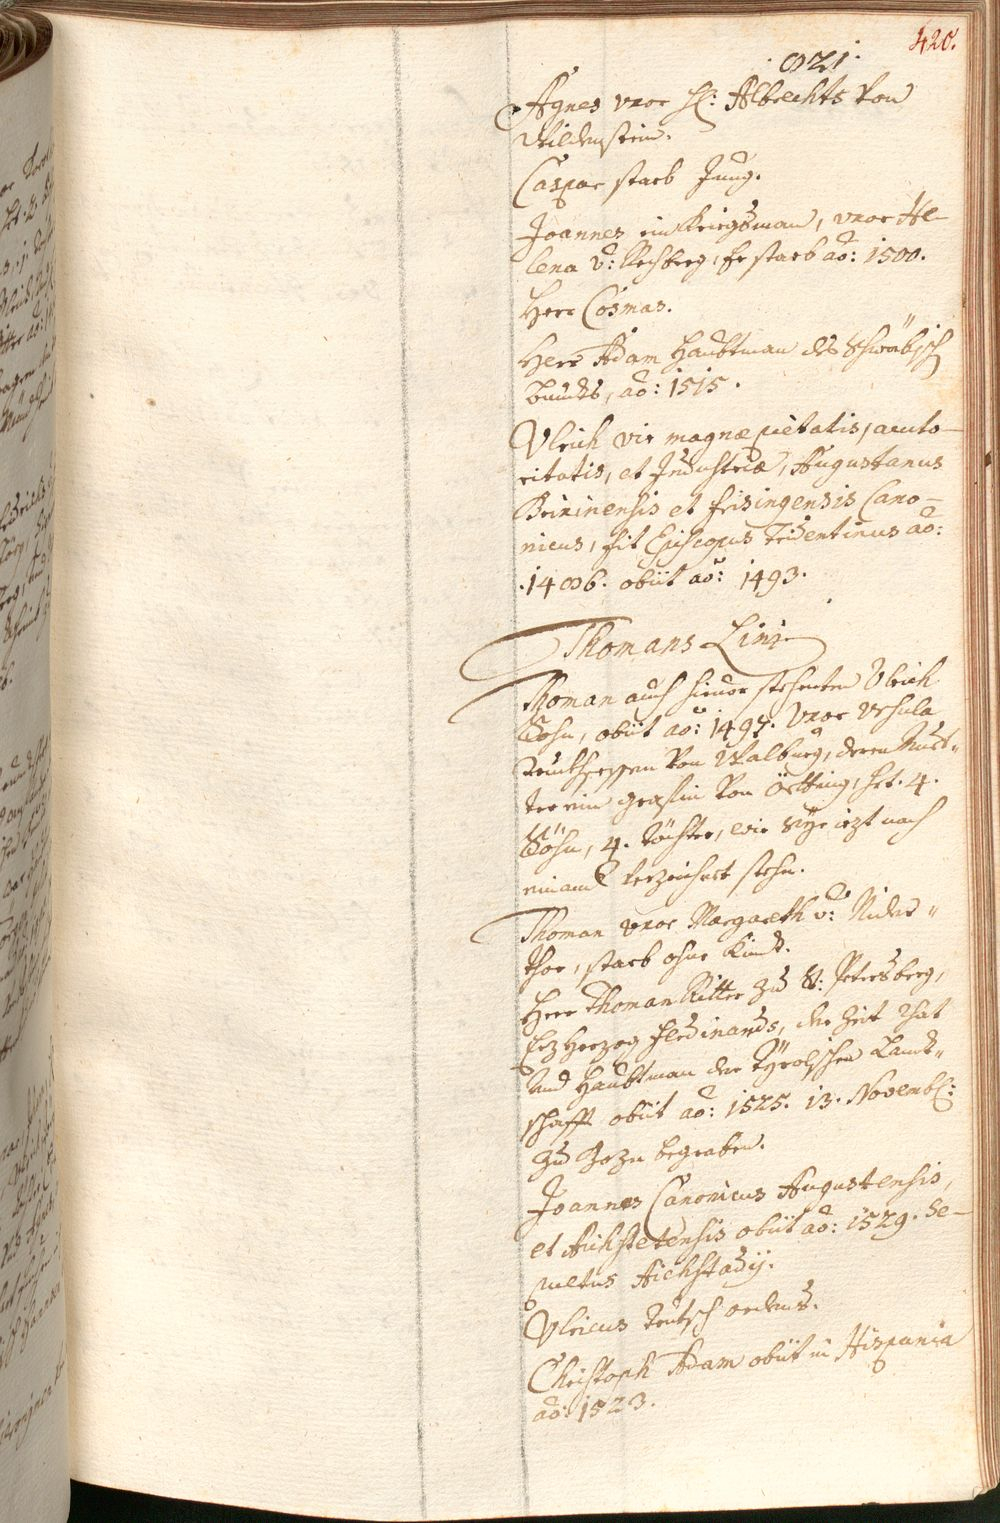 420.
821.
Agnes vxor H: Albrechts von
Wildenstein.
Caspar starb Jung.
Joannes ein Kriegsman, vxor He-
lena v: Rechberg, Er starb aō: 1500.
Herr Cosmas.
Herr Adam Haubtman des Schwäbisch
Bundts, aō: 1515.
Vlrich vir magnæ pietatis, auto-
ritatis, et Industriæ, Augustanus
Brixinensis et frisingensis Cano-
nicus, fit Episcopus Tridentinus aō:
.1486. obiit aō: 1493.
Thomans Lini
Thoman auch hieuor stehenten Vlrich
Sohn, obiit aō: 1497. Vxor Vrsula
Truchsessen von Walburg, deren Muet-
ter ein gräfin von Öetting, het. 4.
Söhn, 4. Töchter, wie Sye iezt nach
einand verzeichnet stehn.
Thoman vxor Margareth v: Nider-
thor, starb ohne Kindt.
Herr Thoman Ritter zu S: Petersberg,
Erzherzog Ferdinands, der Zeit Rhat
Vnd Haubtman der Tÿrolischen Landt-
schafft obiit aō: 1525. 13. Novemb:
zu Bozn begraben.
Joannes Canonicus Augustensis,
et Aichstetensis obiit aō: 1529. Se-
pultus Aichstadij.
Vlricus Teutsch ordens.
Christoph Adam obiit in Hispania
aō: 1523.